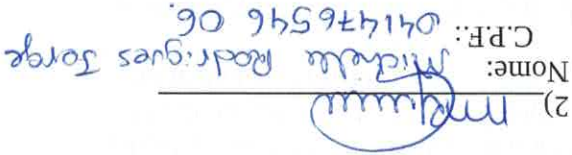 2)
Nome: Michelle Rodrigues Jorge
C.P.F.: 041476546 06.